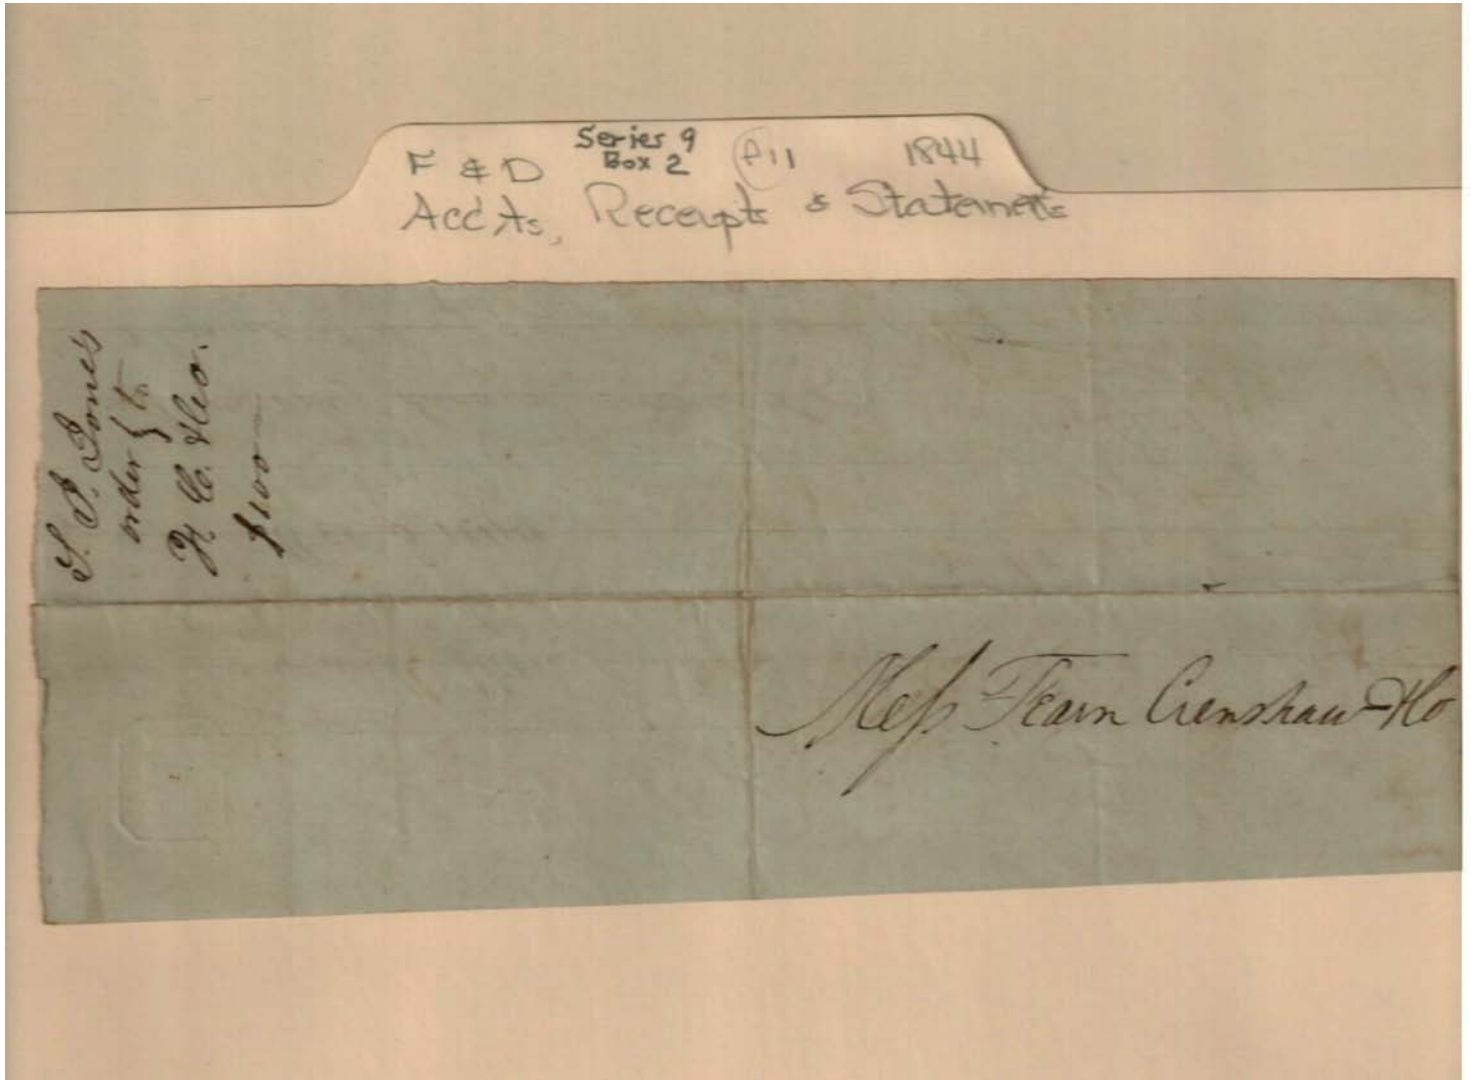 Series 9
Box 2
F & D
F11
1844
Acc'ts, Receipts & Statements
S. P. Jones
order
F. C. & Co.
$100
Mess Fearn Crenshaw & Co